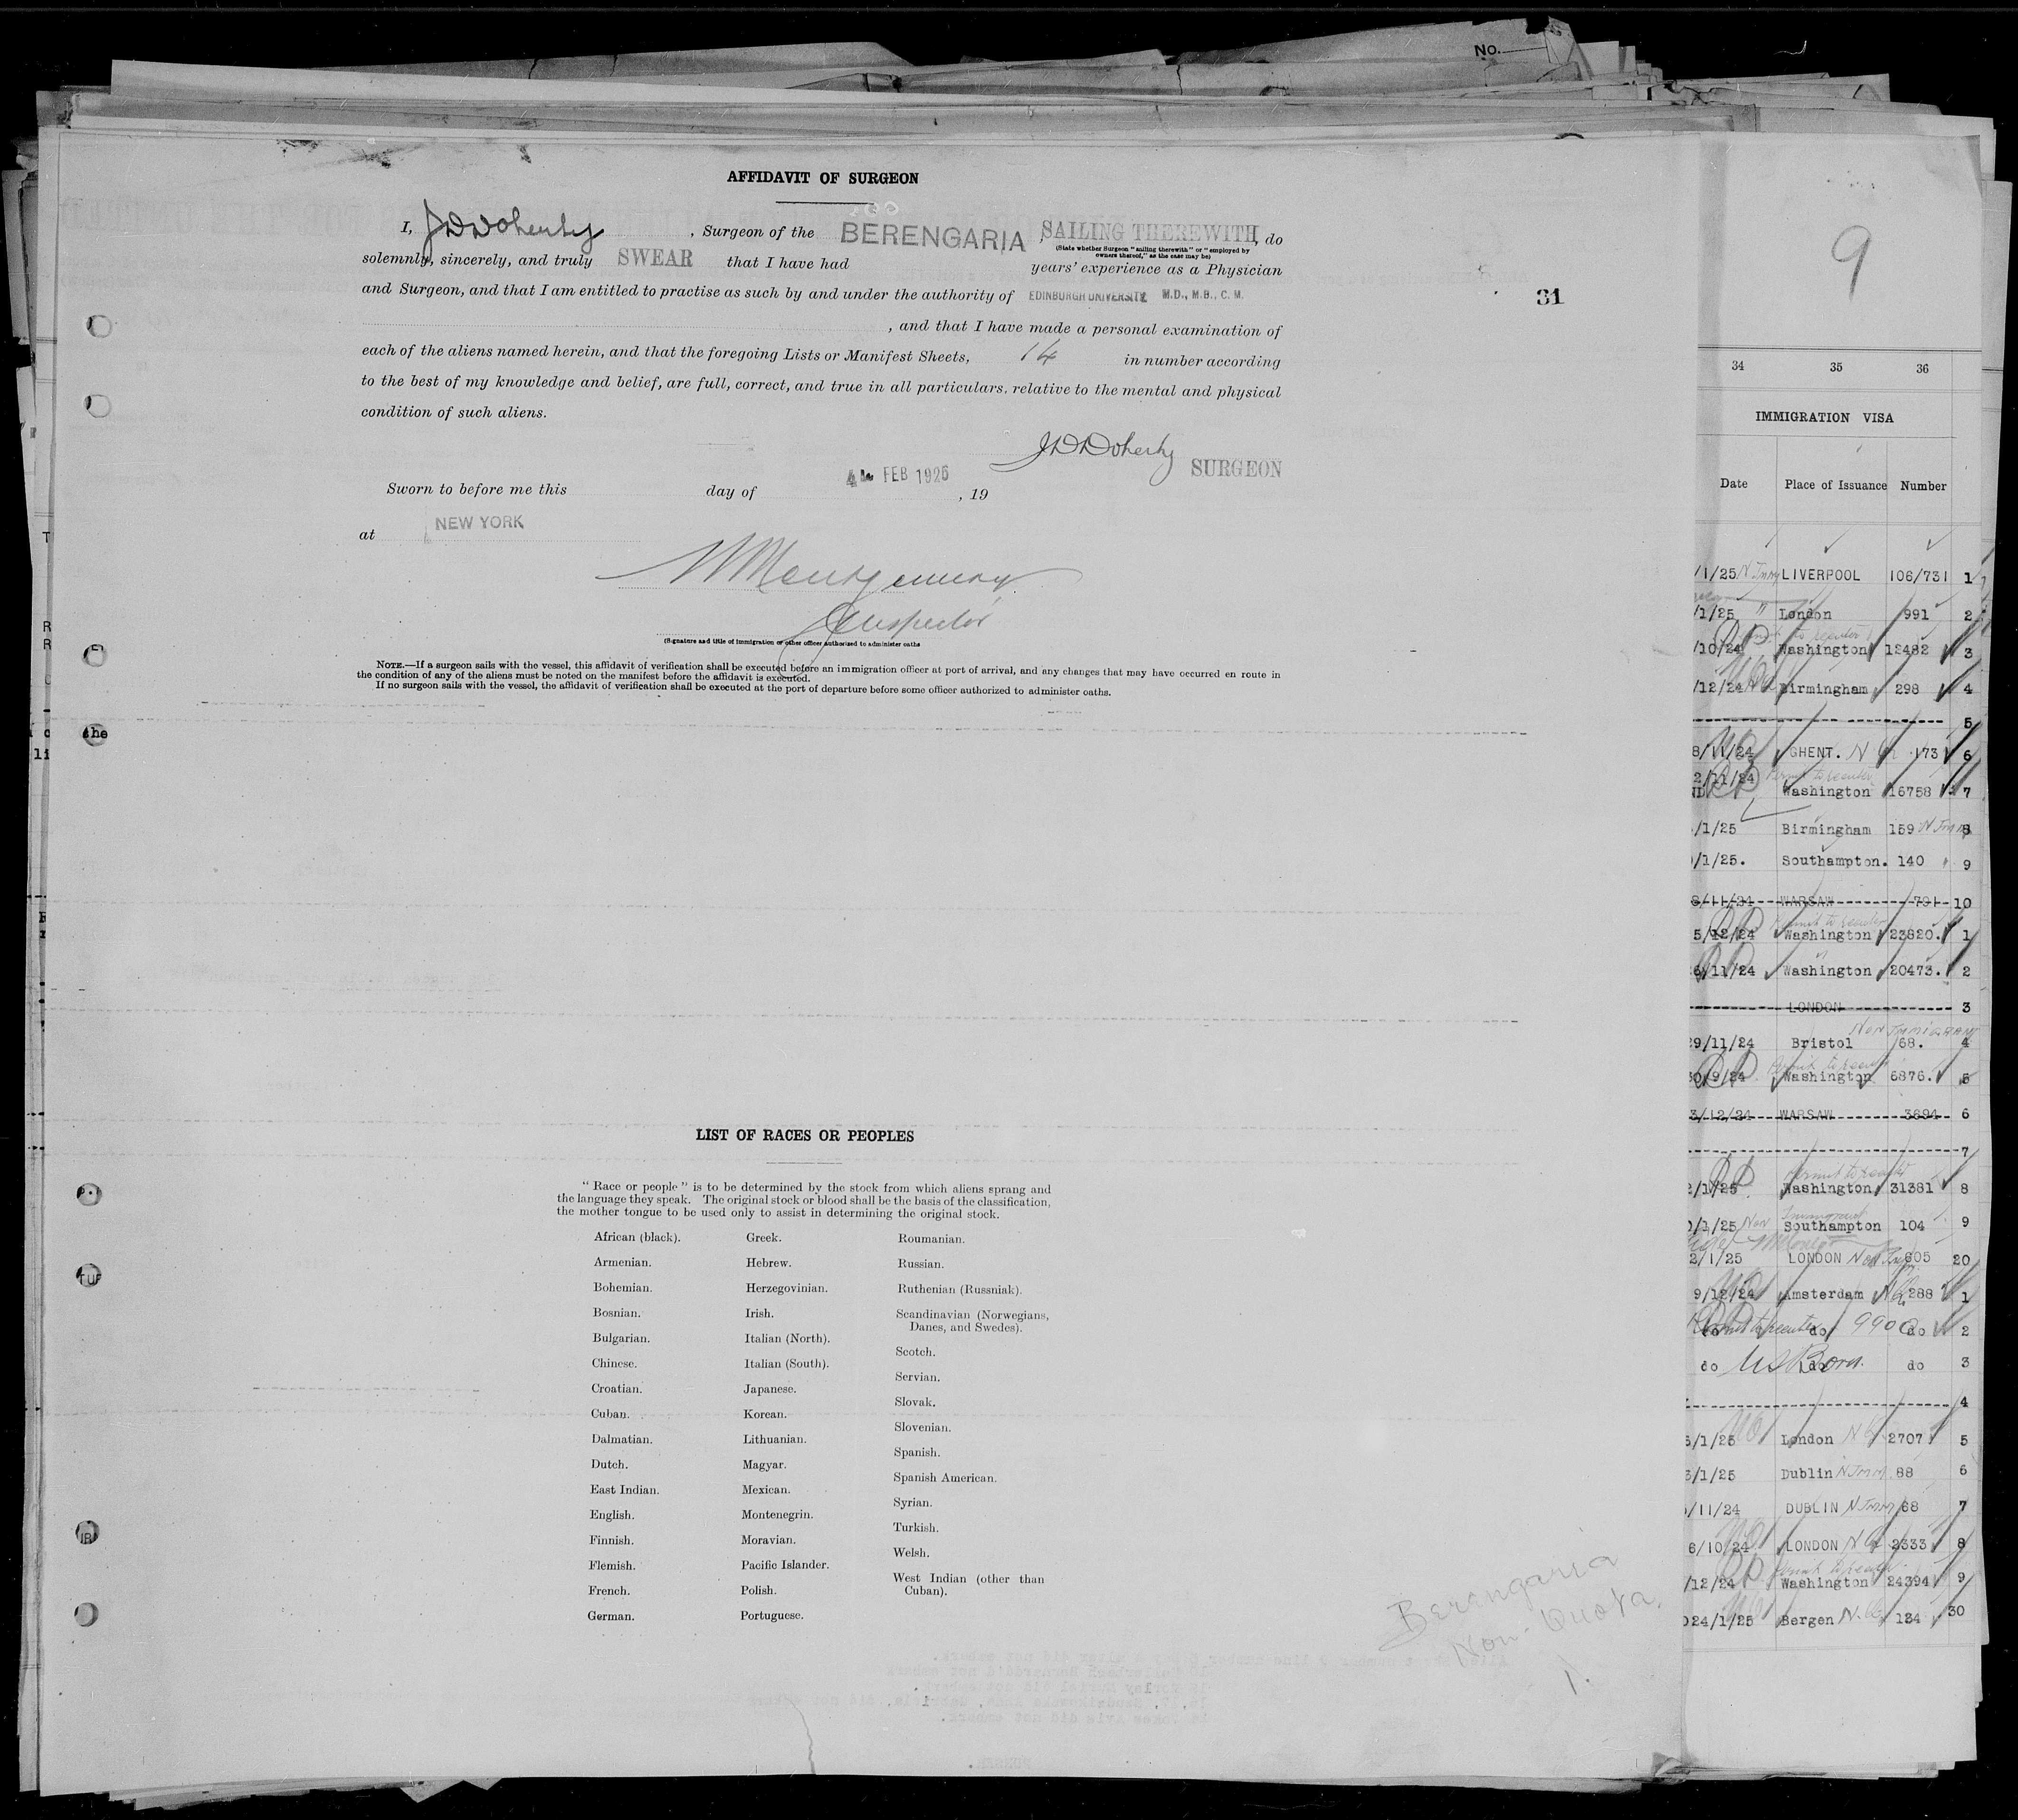 No.
AFFIDAVIT OF SURGEON
I, J D Doherty, Surgeon of the BERENGARIA, SAILING THEREWITH, do
(State whether Surgeon "sailing therewith" or "employed by
owners thereof," as the case may be)
solemnly, sincerely, and truly SWEAR that I have had years' experience as a Physician
and Surgeon, and that I am entitled to practise as such by and under the authority of EDINBURGH UNIVERSITY M.D., M.B., C.M.
, and that I have made a personal examination of
each of the aliens named herein, and that the foregoing Lists or Manifest Sheets, 14 in number according
to the best of my knowledge and belief, are full, correct, and true in all particulars. relative to the mental and physical
condition of such aliens.
J D Doherty SURGEON
Sworn to before me this day of 4 FEB 1925, 19
at NEW YORK
Montgomery
Inspector
(Signature and title of immigration or other officer authorized to administer oaths
NOTE.—If a surgeon sails with the vessel, this affidavit of verification shall be executed before an immigration officer at port of arrival, and any changes that may have occurred en route in
the condition of any of the aliens must be noted on the manifest before the affidavit is executed.
If no surgeon sails with the vessel, the affidavit of verification shall be executed at the port of departure before some officer authorized to administer oaths.
31
LIST OF RACES OR PEOPLES
"Race or people" is to be determined by the stock from which aliens sprang and
the language they speak. The original stock or blood shall be the basis of the classification,
the mother tongue to be used only to assist in determining the original stock.
African (black).
Armenian.
Bohemian.
Bosnian.
Bulgarian.
Chinese.
Croatian.
Cuban.
Dalmatian.
Dutch.
East Indian.
English.
Finnish.
Flemish.
French.
German.
Greek.
Hebrew.
Herzegovinian.
Irish.
Italian (North).
Italian (South).
Japanese.
Korean.
Lithuanian.
Magyar.
Mexican.
Montenegrin.
Moravian.
Pacific Islander.
Polish.
Portuguese.
Roumanian.
Russian.
Ruthenian (Russniak).
Scandinavian (Norwegians,
Danes, and Swedes).
Scotch.
Servian.
Slovak.
Slovenian.
Spanish.
Spanish American.
Syrian.
Turkish.
Welsh.
West Indian (other than
Cuban).
Berengaria
Non-Quota.
1.
9
34 35 36
IMMIGRATION VISA
Date Place of Issuance Number
/1/25 N Immg LIVERPOOL 106/731 1
/1/25 " London 991 2
/10/24 Permit to reenter Washington 12482 3
/12/24 Birmingham 298 4
5
8/11/24 GHENT. N Q 173 6
2/11/24 Permit to reenter Washington 16758 7
/1/25 Birmingham 159 N Imm 8
/1/25. Southampton. 140 9
8/11/24 WARSAW 791 10
5/12/24 Permit to reenter Washington 23820. 1
6/11/24 " Washington 20473. 2
LONDON 3
29/11/24 Bristol 68. Non Immigrant 4
30/9/24 Permit to reenter Washington 6876. 5
3/12/24 WARSAW 3694 6
7
2/1/25 Permit to reenter Washington 31381 8
/1/25 Non Immigrant Southampton 104 9
2/1/25 LONDON Non Imm. 805 20
9/12/24 Amsterdam N Q 288 1
do Permit to reenter do 990 do 2
do US Born. do do 3
4
/1/25 London N Q 2707 5
3/1/25 Dublin N Imm 88 6
/11/24 DUBLIN N Imm 68 7
6/10/24 LONDON N Q 2333 8
/12/24 Permit to reenter Washington 24394 9
24/1/25 Bergen N.Q. 134 30